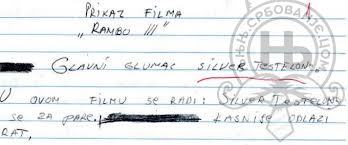 PRIKAZ FILMA
„RAMBO III"
GLAVNI GLUMAC SILVER TESTELONE.
U OVOM FILMU SE RADI: SILVER TESTELONE
SE ZA PARE. KASNIJE ODLAZI
RAT,